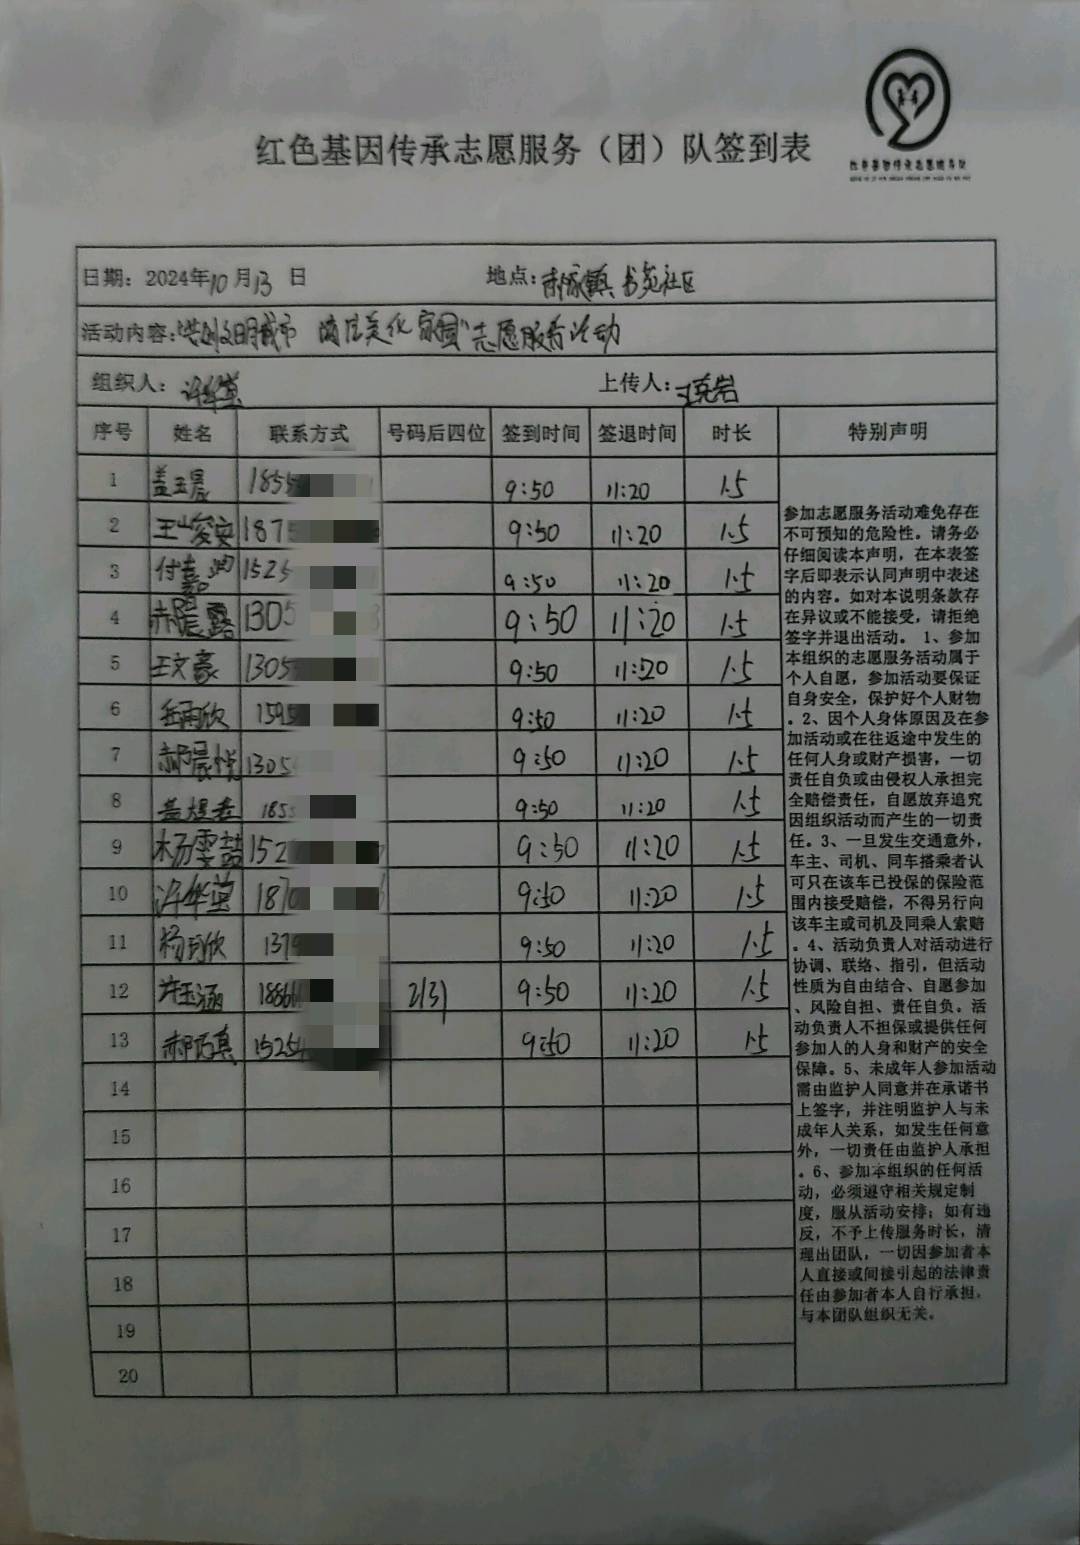 红色基因传承志愿服务（团）队签到表
日期：2024年10月13 日 地点：郝家镇 书苑社区
活动内容：“共创文明城市 清洁美化家园”志愿服务活动
组织人：许华堂 上传人：
序号 姓名 联系方式 号码后四位 签到时间 签退时间 时长 特别声明
1 盖玉晨 1855 9:50 11:20 1.5
2 王峻安 187 9:50 11:20 1.5
3 付嘉润 1525 9:50 11:20 1.5
4 郝晨露 1305 9:50 11:20 1.5
5 王文豪 1305 9:50 11:20 1.5
6 岳雨欣 1595 9:50 11:20 1.5
7 郝晨悦 1305 9:50 11:20 1.5
8 盖煜 185 9:50 11:20 1.5
9 杨雯喆 152 9:50 11:20 1.5
10 许华堂 1870 9:50 11:20 1.5
11 杨 欣 137 9:50 11:20 1.5
12 许玉涵 18866 2131 9:50 11:20 1.5
13 郝 真 15254 9:50 11:20 1.5
14
15
16
17
18
19
20
参加志愿服务活动难免存在
不可预知的危险性。请务必
仔细阅读本声明，在本表签
字后即表示认同声明中表述
的内容。如对本说明条款存
在异议或不能接受，请拒绝
签字并退出活动。 1、参加
本组织的志愿服务活动属于
个人自愿，参加活动要保证
自身安全，保护好个人财物
。2、因个人身体原因及在参
加活动或在往返途中发生的
任何人身或财产损害，一切
责任自负或由侵权人承担完
全赔偿责任，自愿放弃追究
因组织活动而产生的一切责
任。3、一旦发生交通意外，
车主、司机、同车搭乘者认
可只在该车已投保的保险范
围内接受赔偿，不得另行向
该车主或司机及同乘人索赔
。4、活动负责人对活动进行
协调、联络、指引，但活动
性质为自由结合、自愿参加
、风险自担、责任自负。活
动负责人不担保或提供任何
参加人的人身和财产的安全
保障。5、未成年人参加活动
需由监护人同意并在承诺书
上签字，并注明监护人与未
成年人关系，如发生任何意
外，一切责任由监护人承担
。6、参加本组织的任何活
动，必须遵守相关规定制
度，服从活动安排；如有违
反，不予上传服务时长，清
理出团队，一切因参加者本
人直接或间接引起的法律责
任由参加者本人自行承担，
与本团队组织无关。